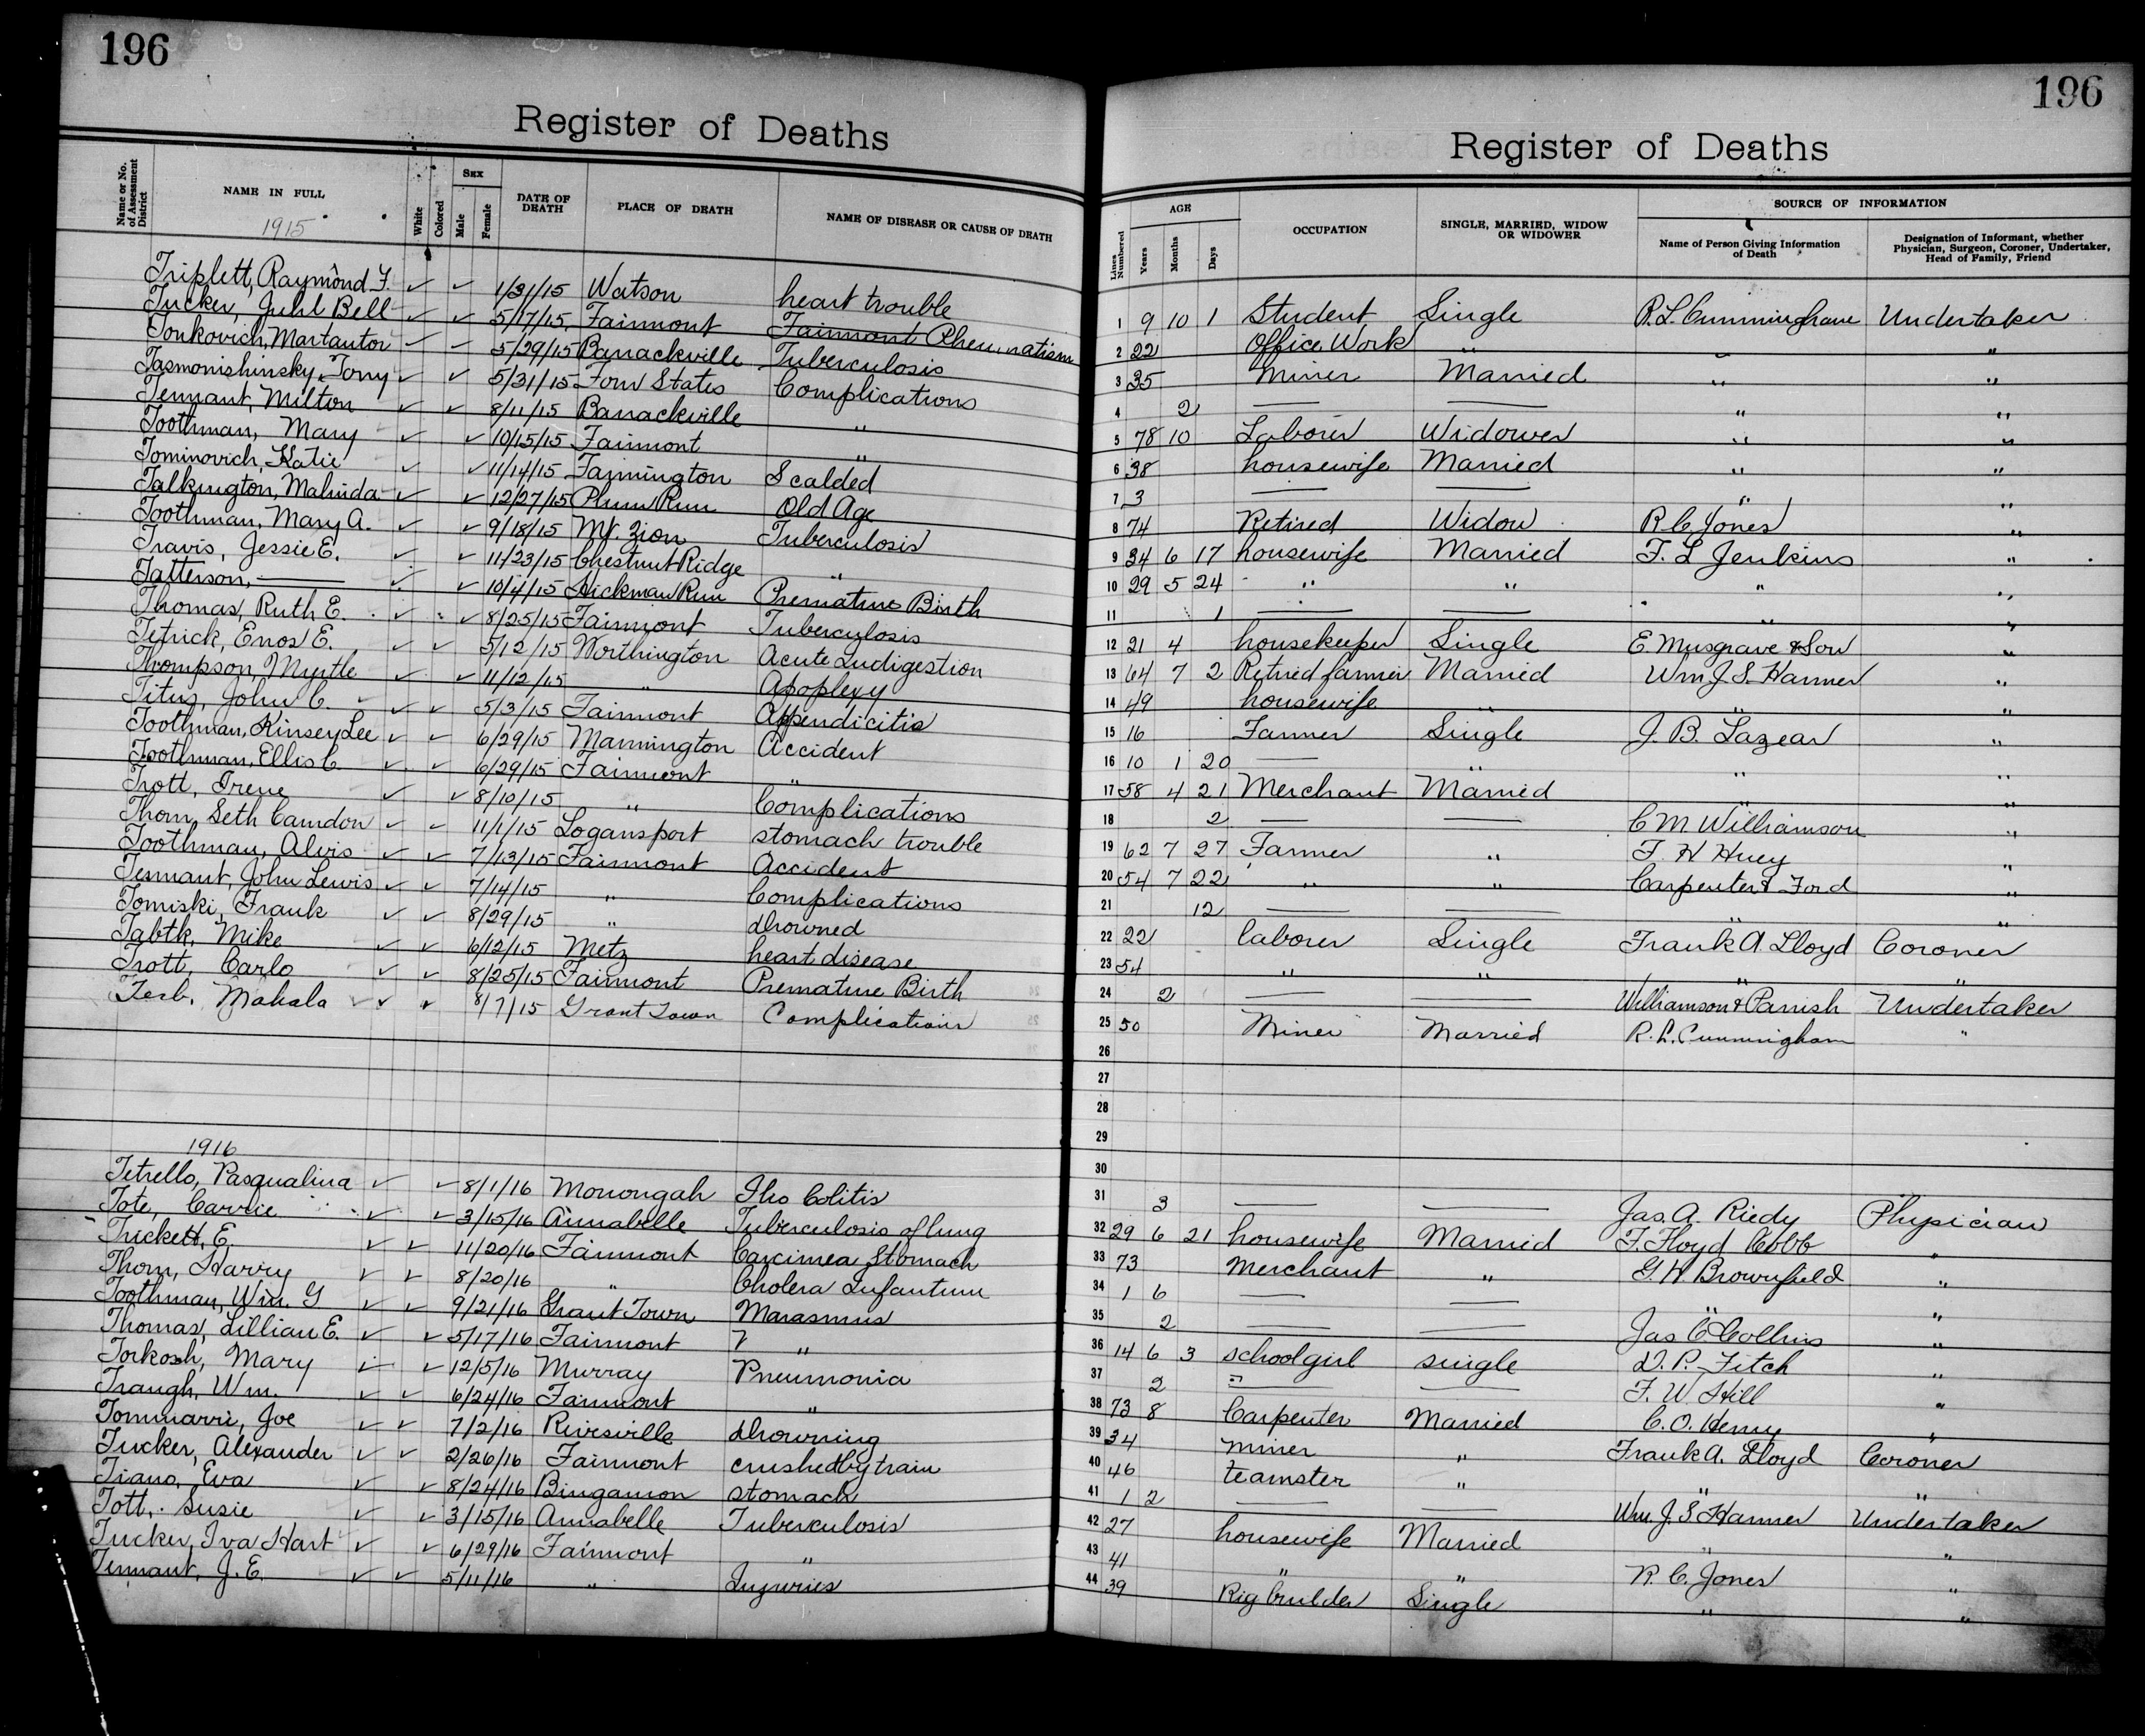 196
Register of Deaths
Name or No. of Assessment District
NAME IN FULL
White
Colored
SEX
Male
Female
DATE OF DEATH
PLACE OF DEATH
NAME OF DISEASE OR CAUSE OF DEATH
1915
Triplett, Raymond F. ✓ ✓ 1/31/15 Watson heart trouble
Tucker, Juhl Bell ✓ ✓ 5/17/15 Fairmont Fairmont Pheumatism
Tonkovich, Martantor ✓ ✓ 5/29/15 Barrackville Tuberculosis
Tasmonishinsky, Tony ✓ ✓ 5/31/15 Four States Complications
Tennant, Milton ✓ ✓ 8/11/15 Barrackville "
Toothman, Mary ✓ ✓ 10/15/15 Fairmont "
Tominovich, Katie ✓ ✓ 11/14/15 Farmington Scalded
Talkington, Malinda ✓ ✓ 12/27/15 Plum Run Old Age
Toothman, Mary A. ✓ ✓ 9/18/15 Mt. Zion Tuberculosis
Travis, Jessie E. ✓ ✓ 11/23/15 Chestnut Ridge "
Tatterson, — ✓ ✓ 10/4/15 Hickman Run Premature Birth
Thomas, Ruth E. ✓ ✓ 8/25/15 Fairmont Tuberculosis
Tetrick, Enos E. ✓ ✓ 5/12/15 Worthington Acute Indigestion
Thompson, Myrtle ✓ ✓ 11/12/15 " Apoplexy
Titus, John C. ✓ ✓ 5/3/15 Fairmont Appendicitis
Toothman, Kinsey Lee ✓ ✓ 6/29/15 Mannington Accident
Toothman, Ellis C. ✓ ✓ 6/29/15 Fairmont "
Trott, Irene ✓ ✓ 8/10/15 " Complications
Thorn, Seth Camdon ✓ ✓ 11/1/15 Logansport stomach trouble
Toothman, Alvis ✓ ✓ 7/13/15 Fairmont Accident
Tennant, John Lewis ✓ ✓ 7/14/15 " Complications
Tomiski, Frank ✓ ✓ 8/29/15 " drowned
Tabtk, Mike ✓ ✓ 6/12/15 Metz heart disease
Trott, Carlo ✓ ✓ 8/25/15 Fairmont Premature Birth
Terb, Mahala ✓ ✓ 8/7/15 Grant Town Complications
1916
Tetrello, Pasqualina ✓ ✓ 8/1/16 Monongah Ilio Colitis
Tote, Carrie ✓ ✓ 3/15/16 Annabelle Tuberculosis of lung
Trickett, E. ✓ ✓ 11/20/16 Fairmont Carcimea Stomach
Thorn, Harry ✓ ✓ 8/20/16 " Cholera Infantum
Toothman, Wm. G ✓ ✓ 9/21/16 Grant Town Marasmus
Thomas, Lillian E. ✓ ✓ 5/17/16 Fairmont ? "
Torkosh, Mary ✓ ✓ 12/5/16 Murray Pneumonia
Traugh, Wm. ✓ ✓ 6/24/16 Fairmont "
Tommarri, Joe ✓ ✓ 7/2/16 Rivesville drowning
Tucker, Alexander ✓ ✓ 2/26/16 Fairmont crushed by train
Tiano, Eva ✓ ✓ 8/24/16 Bingamon stomach
Tott, Susie ✓ ✓ 3/15/16 Annabelle Tuberculosis
Tucker, Iva Hart ✓ ✓ 6/29/16 Fairmont "
Tennant, J. E. ✓ ✓ 5/11/16 " Injuries
196
Register of Deaths
Lines Numbered
AGE
Years
Months
Days
OCCUPATION
SINGLE, MARRIED, WIDOW OR WIDOWER
SOURCE OF INFORMATION
Name of Person Giving Information of Death
Designation of Informant, whether Physician, Surgeon, Coroner, Undertaker, Head of Family, Friend
1 9 10 1 Student Single R. L. Cunningham Undertaker
2 22 Office Work " " "
3 35 Miner Married " "
4 2 — — " "
5 78 10 Laborer Widower " "
6 38 housewife Married " "
7 3 — — " "
8 74 Retired Widow R. C. Jones "
9 34 6 17 housewife Married F. L Jenkins "
10 29 5 24 " " " "
11 1 — — " "
12 21 4 housekeeper Single E. Musgrave & Son "
13 64 7 2 Retired farmer Married Wm J. S. Harmer "
14 49 housewife " " "
15 16 Farmer Single J. B. Lazear "
16 10 1 20 — " " "
17 58 4 21 Merchant Married " "
18 2 — — C M. Williamson "
19 62 7 27 Farmer " F. H Huey "
20 54 7 22 " " Carpenter & Ford "
21 12 — — " "
22 22 laborer Single Frank A. Lloyd Coroner
23 54 " " " "
24 2 — — Williamson & Parrish Undertaker
25 50 Miner Married R. L. Cunningham "
26
27
28
29
30
31 3 — — Jas. A. Riedy Physician
32 29 6 21 housewife Married F. Floyd Cobb "
33 73 Merchant " G. H Brownfield "
34 1 6 — — " "
35 2 — — Jas C Collins "
36 14 6 3 school girl single D. P. Fitch "
37 2 — — F. W Hill "
38 73 8 Carpenter Married C. O. Henry "
39 34 miner " Frank A. Lloyd Coroner
40 46 teamster " " "
41 1 2 — — Wm. J. S Harmer Undertaker
42 27 housewife Married " "
43 41 " " R. C. Jones "
44 39 Rig builder Single " "